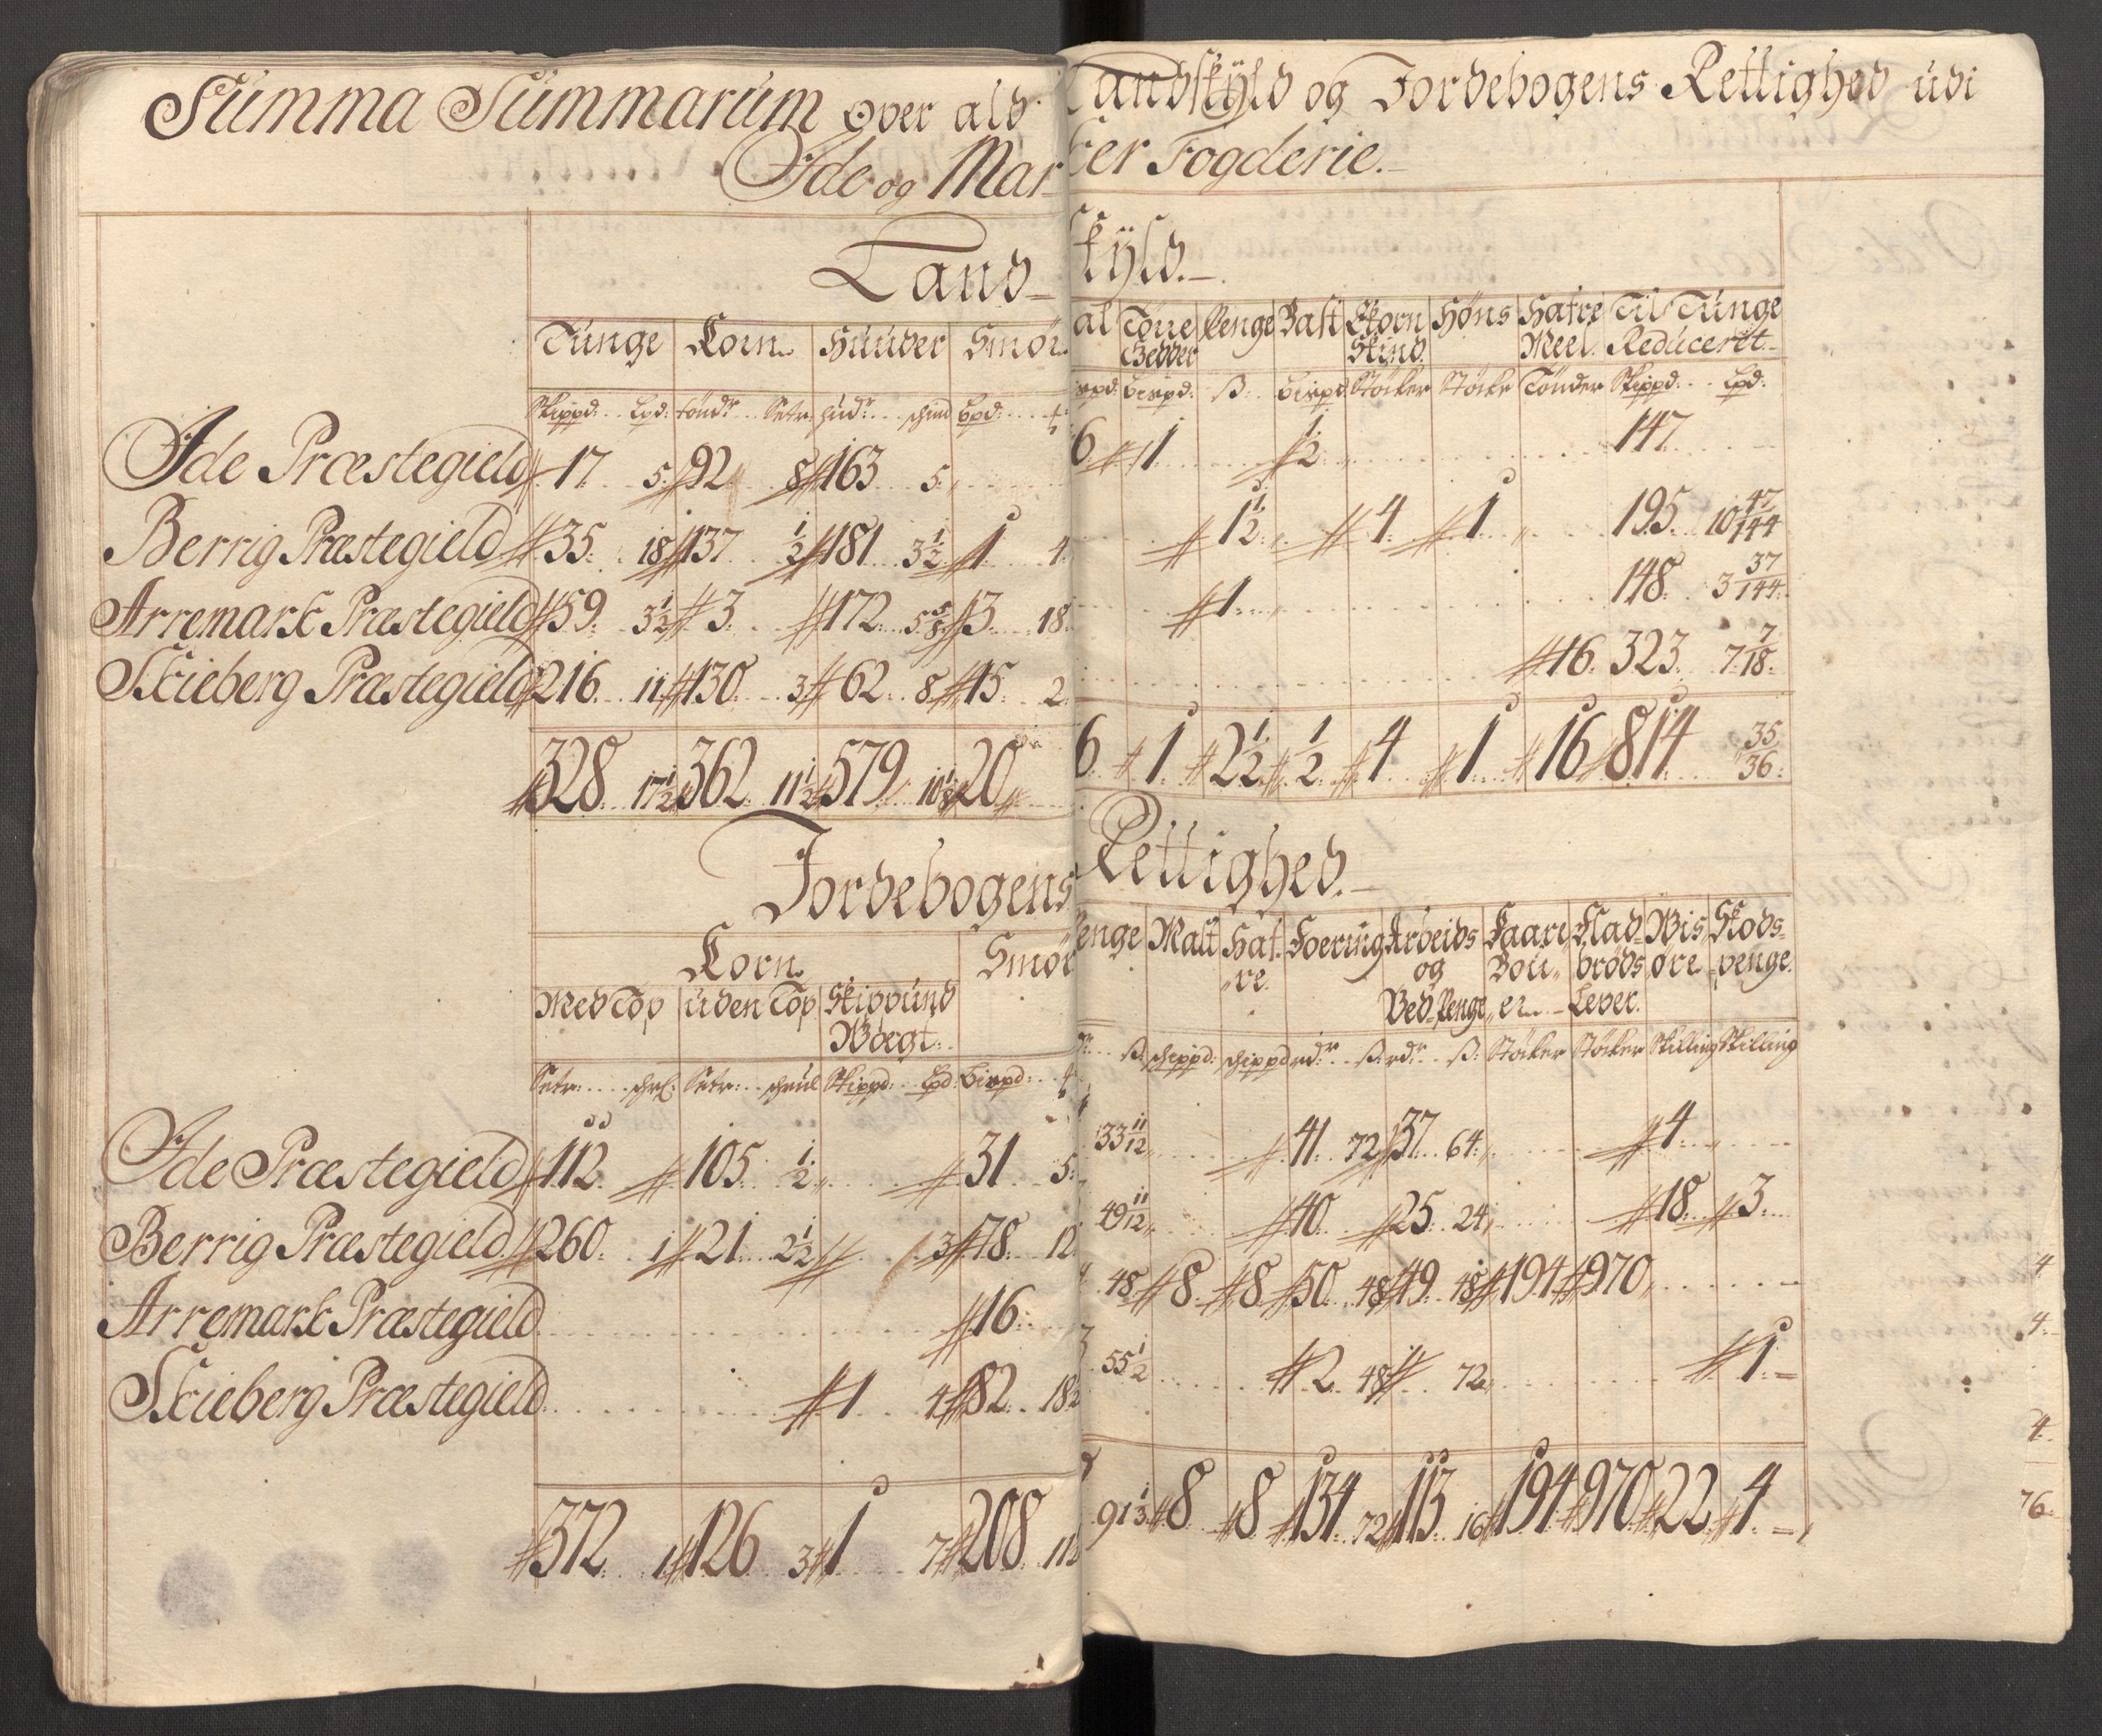 Summa Summarum over ald Landskyld og Jordebogens Rettighed udi
Ide og Marcker Fogderie.
Landskyld.
Tunge Korn Huuder Smør al Törre Gedder Penge Bast Ekorn Skind Høns Hafre Meel Til Tunge Reducerit
Skippd: Lpd: tönd.r Setr: hud.r schind Bpd: Bispd: Bispd: ß: Bispd: Stöcker Stöcker Tönder Skippd: Lpd:
Ide Præstegield 17 5 92 8 163 5 6 1 1/2 147
Berrig Præstegield 35 18 137 1/2 181 3 1/2 1 4 1 1/2 4 1 195 10 47/144
Arremark Præstegield 59 3 1/2 3 172 5 5/8 3 18 1 148 3 37/144
Skieberg Præstegield 216 11 130 3 62 8 15 2 16 323 7 7/18
328 17 1/2 362 11 1/2 579 10 1/8 20 6 1 2 1/2 1/2 4 1 16 814 35/36
Jordebogens Rettighed.
Korn Smør Penge Malt Hafre Foering Arbeids og Ved Penge Faare Bou er Flad brøds Lever. Wis øre Skods penge.
Med Top uden Top Skippund Wægt.
Setr: schrl: Setr: schrul Skippd: Lpd: Bispd: ß: schippd: schippd rdr ß: rdr ß: Stöcker Stöcker Skilling Skilling
Ide Præstegield 112 105 1/2 31 5 33 11/12 41 72 37 64 4
Berrig Præstegield 260 1 21 2 1/2 3 78 12 49 11/12 40 25 24 18 3
Arremark Præstegield 16 48 8 8 50 48 49 48 194 970
Skieberg Præstegield 1 4 82 18 1/2 55 1/2 2 48 72 1
372 1 126 3 1 7 208 11 1/2 91 1/3 8 8 134 72 113 16 194 970 22 4
4
4
4
76